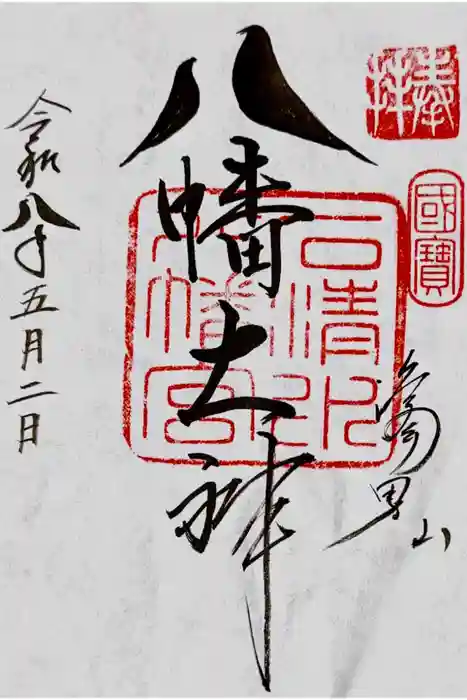 奉拝
國寶
鳩男山
八幡大神
石清水八幡宮
令和八年五月二日